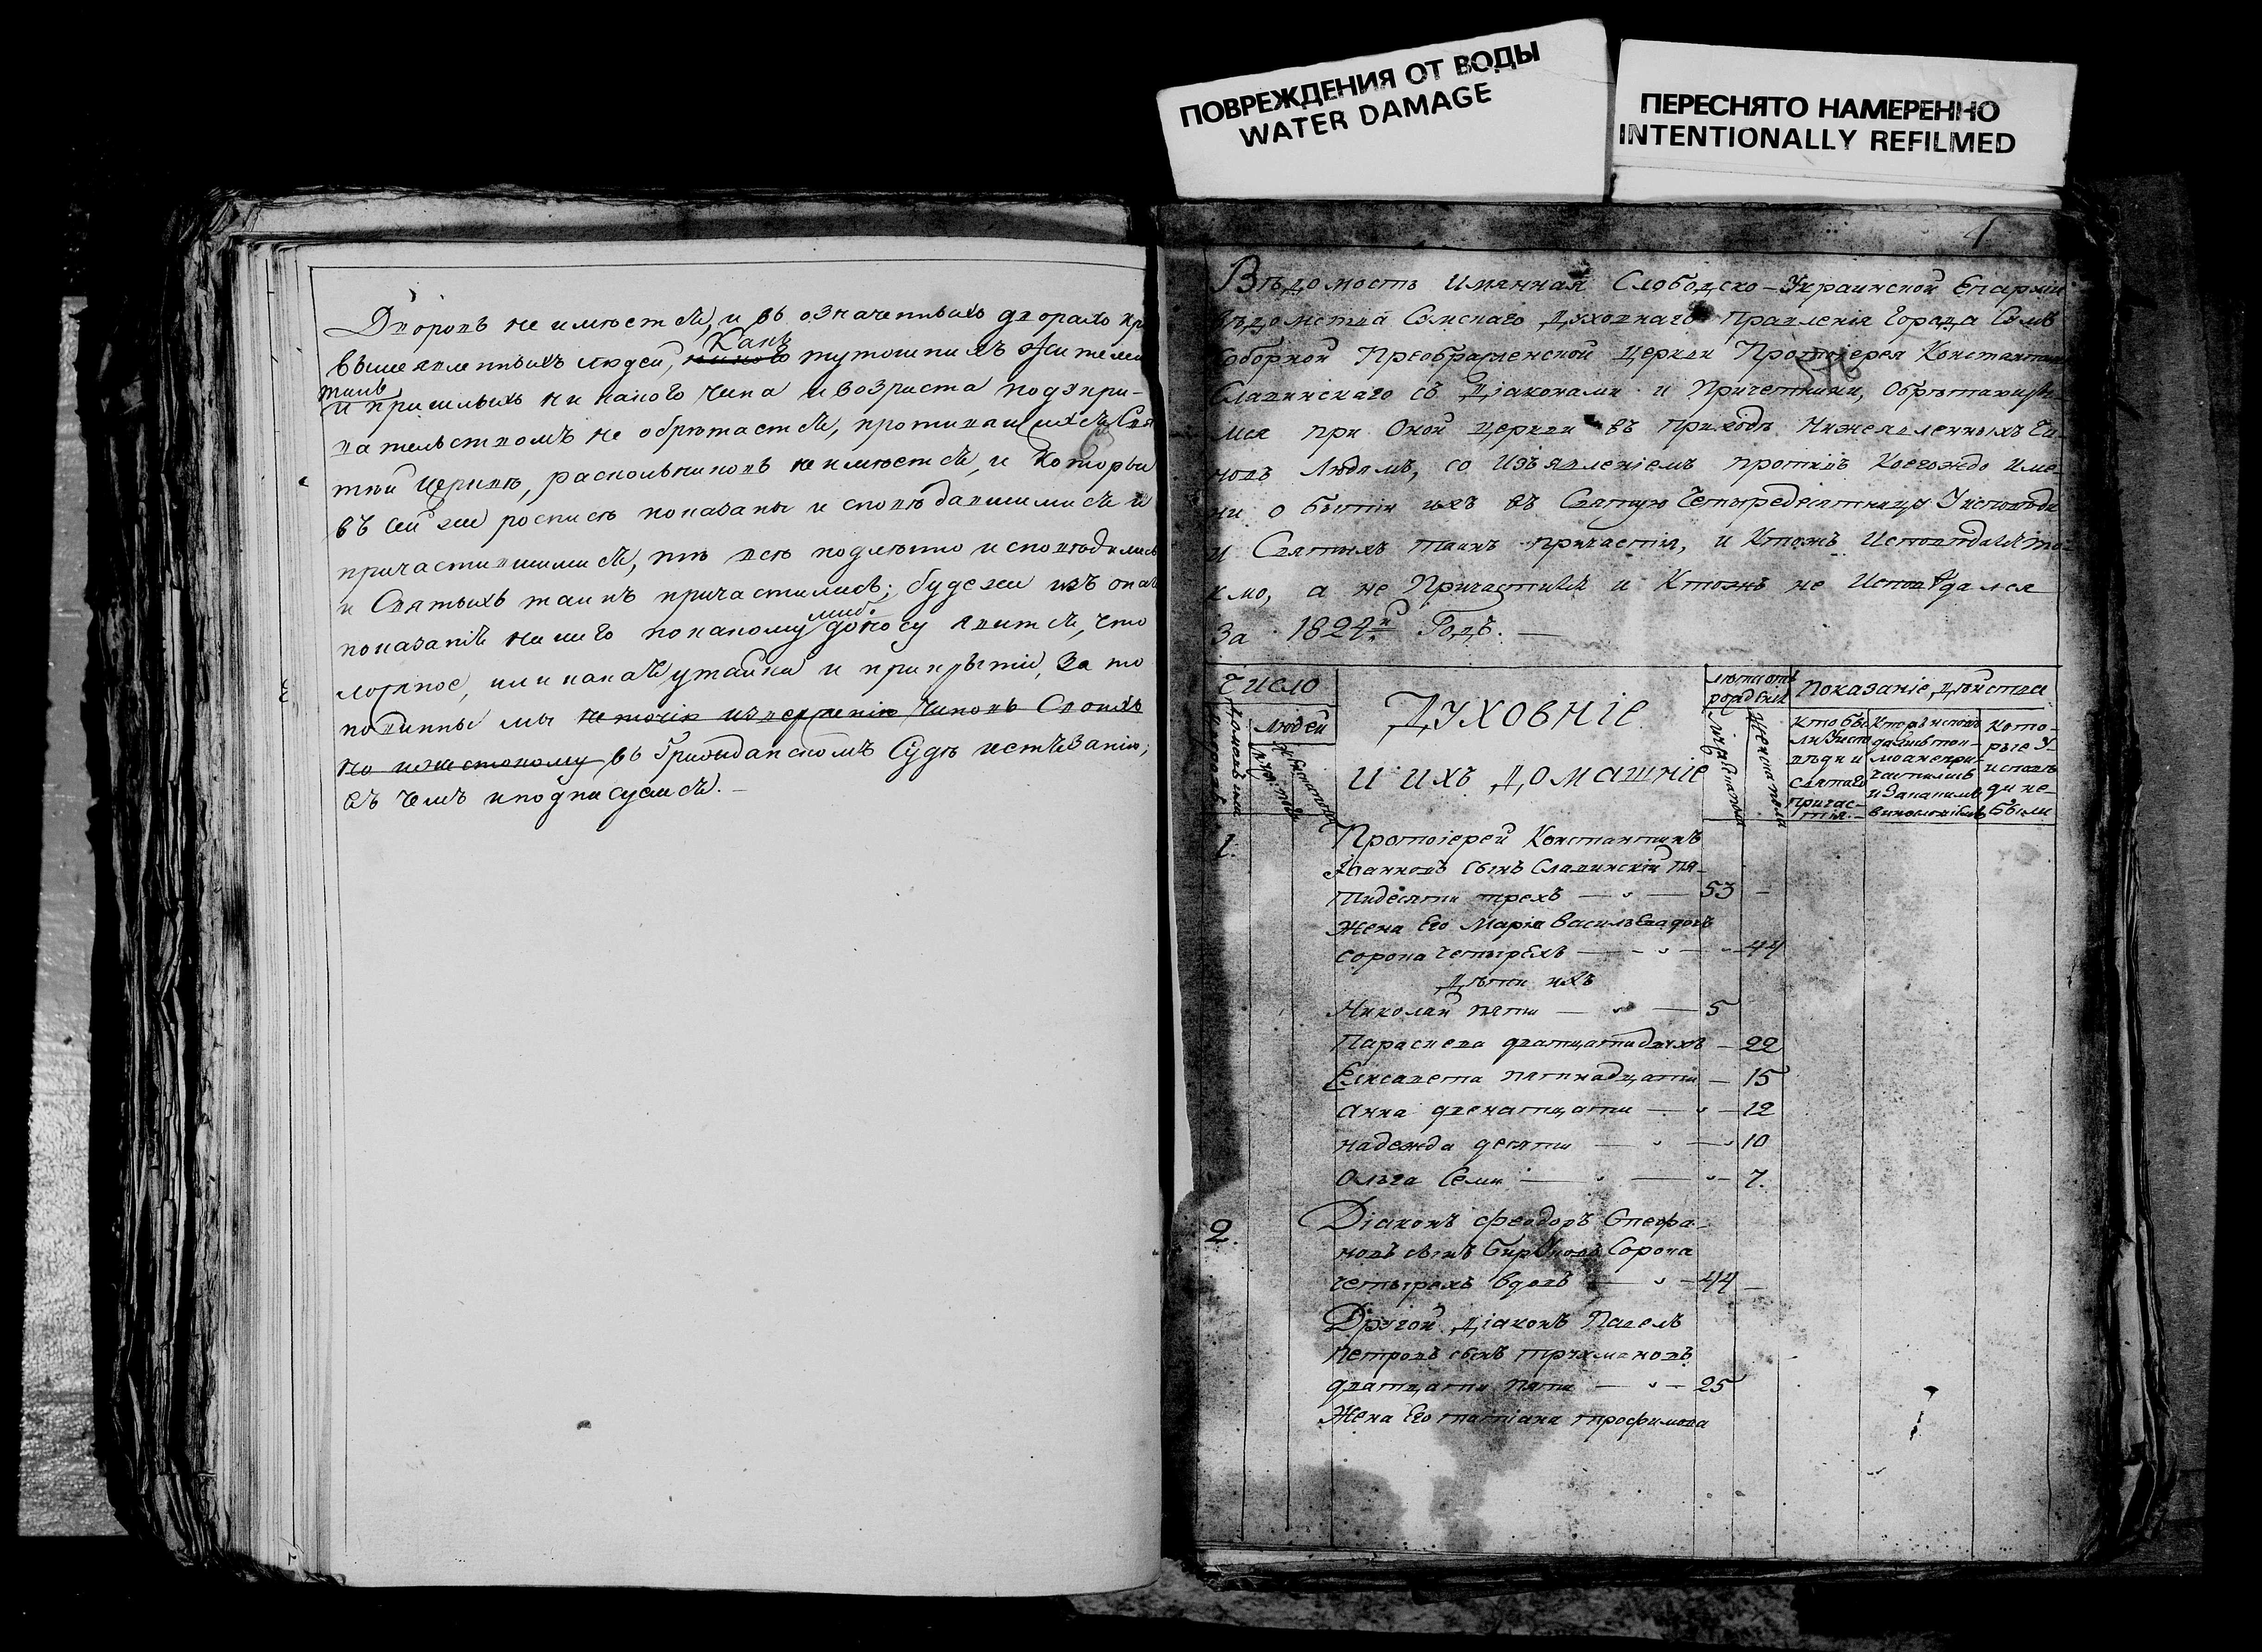 ПОВРЕЖДЕНИЯ ОТ ВОДЫ
WATER DAMAGE
ПЕРЕСНЯТО НАМЕРЕННО
INTENTIONALLY REFILMED
Дворовъ не имѣется, и въ означенныхъ дворахъ
вышеявленныхъ людей, Какъ тутошнихъ жителей
такъ
и пришлыхъ ни какого чина и возраста подъ при-
вательствомъ не обрѣтается, противящихся
тѣй Церкви, раскольниковъ неимѣется, и Которыи
въ сей же росписѣ показаны исповѣдавшимися и
причастившимися, тѣ всѣ подлѣнно исповѣдались
и Святыхъ таинъ причастились; буде же изъ онаго
либо
показанія нашего покакому доносу явится, что
ложное, или какая утайка и прикрытіе, За то
повинны мы не точію изверженію Чиновъ Своихъ
но и жестокому въ Гражданскомъ Судѣ истязанію;
въ чемъ и подписуемся. —
1
Вѣдомость Имянная Слободско-Украинской Епархіи
Вѣдомства Сумскаго Духовнаго Правленія Города Сумъ
Соборной Преображенской Церкви Протоіерея Константина
Славинскаго съ Діаконами и Причетники, Обрѣтающи
мся при Оной Церкви въ приходѣ Нижеявленныхъ Чи-
новъ Людямъ, со Изъявленіемъ противъ Коегождо Име-
ни о бытіи ихъ въ Святую Четыредесятницу Уисповѣди
и Святыхъ Таинъ причастія, и Ктожъ Исповѣдался то-
кмо, а не Причастился и Ктожъ не Исповѣдался
За 1824й Годъ. —
Число
Людей
Духовніе
и ихъ домашніе
лѣта отъ
рожденія
Показаніе дѣйства
Кто бы-
ли Уиспо
вѣди и
Святаго
Причас-
тія. —
Кторъ исповѣ
дались ток-
мо а не при-
частились
и За каким
винословіемъ
Кото-
рые У
исповѣ
ди не-
были
1. Протоіерей Константинъ
Іоанновъ сынъ Славинскій пя-
тидесяти трехъ — 53 —
Жена Его Марія Васильева дочь
сорока четырехъ — 44
Дѣти ихъ
Николай пяти — 5
Параскева дватцати двухъ — 22
Елисавета пятнадцати — 15
Анна двенатцати — 12
Надежда десяти — 10
Ольга Семи — 7.
2. Діаконъ Феодоръ Стефа-
новъ сынъ Сорока
четырехъ вдовъ — 44 —
Другой Діаконъ Павелъ
Петровъ сынъ
дватцати пяти — 25
Жена Его татіана трофимова